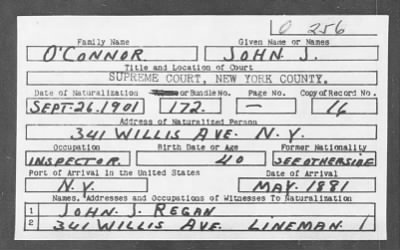 O 256
Family Name Given Name or Names
O'CONNOR JOHN J.
Title and Location of Court
SUPREME COURT, NEW YORK COUNTY.
Date of Naturalization or Bundle No. Page No. Copy of Record No.
SEPT. 26. 1901 172. — 16
Address of Naturalized Person
341 WILLIS AVE. N.Y.
Occupation Birth Date or Age Former Nationality
INSPECTOR. 40 SEE OTHERSIDE
Port of Arrival in the United States Date of Arrival
N.Y. MAY. 1881
Names, Addresses and Occupations of Witnesses To Naturalization
1 JOHN. J. REGAN
2 341 WILLIS AVE. LINEMAN.